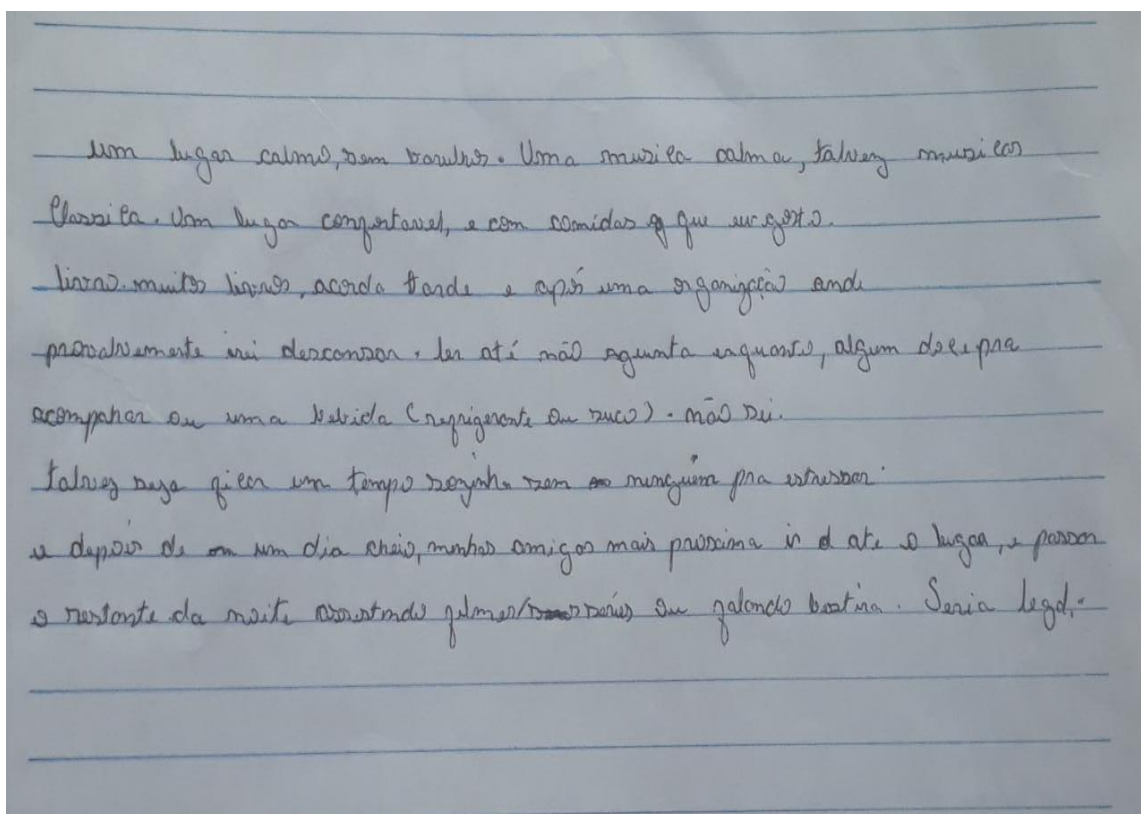 um lugar calmo, sem barulho. Uma musica calma, talvez musicas
Classica. Um lugar confortavel, e com comidas que eu gosto.
livros. muitos livros, acorda tarde e após uma organização
provalvemente irei descansar. ler até não aguenta enquanto, algum doce pra
acompanhar ou uma bebida (refrigerante ou suco). não sei.
talvez seja ficar um tempo sozinha sem ninguém pra estressar.
e depois de um dia cheio, minhas amigas mais proxima ir ate o lugar, e passar
o restante da noite assistindo filmes/series ou falando bestira. Seria legal.